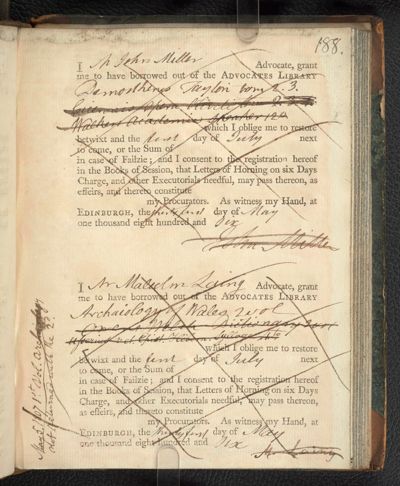 188.
I Mr John Miller Advocate, grant
me to have borrowed out of the ADVOCATES LIBRARY
Demosthenes Taylor tom 2. 3.
which I oblige me to restore
betwixt and the first day of July next
to come, or the Sum of
in case of Failzie; and I consent to the registration hereof
in the Books of Session, that Letters of Horning on six Days
Charge, and other Executorials needful, may pass thereon, as
effeirs, and thereto constitute
my Procurators. As witness my Hand, at
EDINBURGH, the thirty first day of May
one thousand eight hundred and Six
John Miller
I Mr Malcolm Laing Advocate, grant
me to have borrowed out of the ADVOCATES LIBRARY
Archaiology of Wales 2 vol
which I oblige me to restore
betwixt and the first day of July next
to come, or the Sum of
in case of Failzie; and I consent to the registration hereof
in the Books of Session, that Letters of Horning on six Days
Charge, and other Executorials needful, may pass thereon, as
effeirs, and thereto constitute
my Procurators. As witness my Hand, at
EDINBURGH, the thirty first day of May
one thousand eight hundred and Six
M. Laing